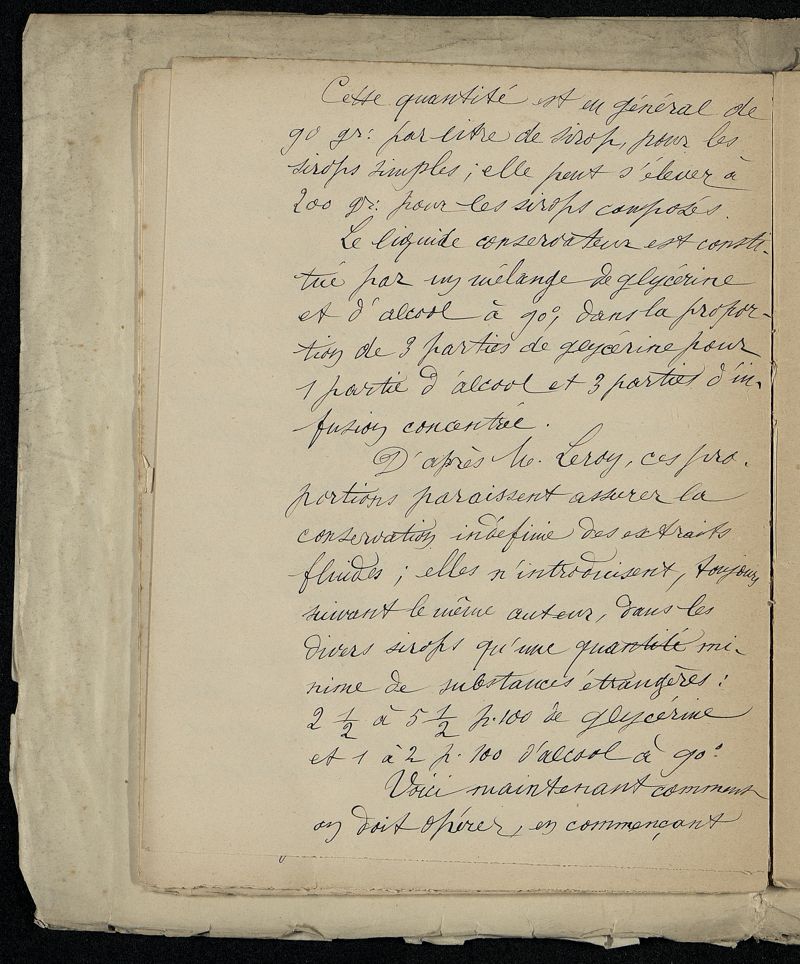 Cette quantité est en général de
90 gr: par litre de sirop, pour les
sirops simples; elle peut s'élever à
200 gr: pour les sirops composés.
Le liquide conservateur est consti-
tué par un mélange de glycérine
et d'alcool à 90°, dans la propor-
tion de 3 parties de glycérine pour
1 partie d'alcool et 3 parties d'in-
fusion concentrée.
D'après M. Leroy, ces pro-
portions paraissent assurer la
conservation indéfinie des extraits
fluides; elles n'introduisent, toujours
suivant le même auteur, dans les
divers sirops qu'une quantité mi-
nime de substances étrangères:
2 1/2 à 5 1/2 p. 100 de glycérine
et 1 à 2 p. 100 d'alcool à 90°
Voici maintenant comment
on doit opérer, en commençant